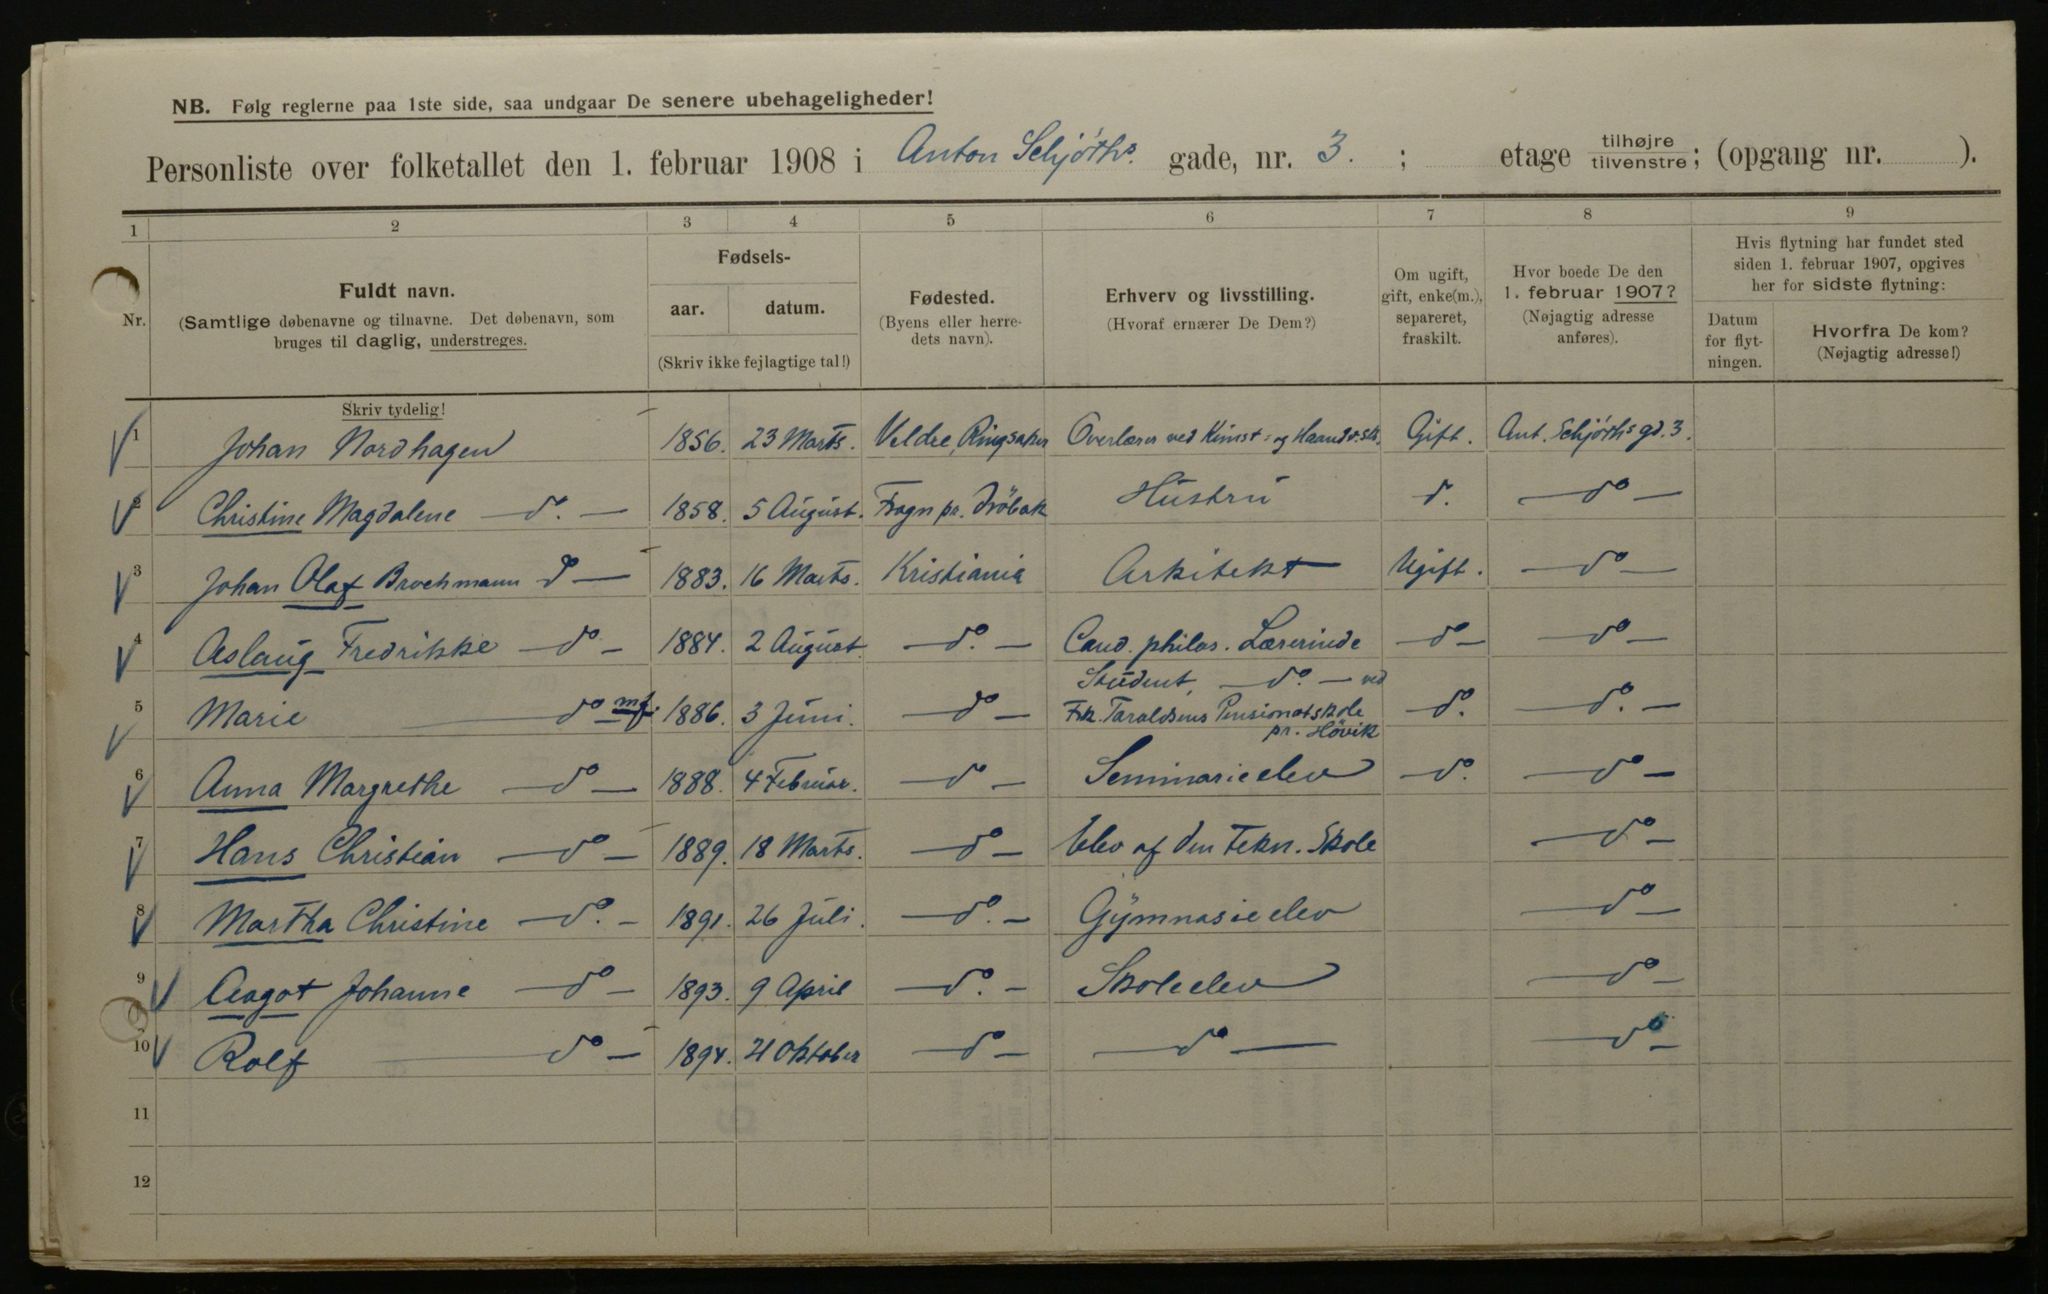 NB. Følg reglerne paa 1ste side, saa undgaar De senere ubehageligheder!
Personliste over folketallet den 1. februar 1908 i Anton Schjøths gade, nr. 3. ; etage tilhøjre tilvenstre; (opgang nr. ).
1 2 3 4 5 6 7 8 9
Nr.
Fuldt navn.
(Samtlige døbenavne og tilnavne. Det døbenavn, som
bruges til daglig, understreges.
Skriv tydelig!
Fødsels-
aar. datum.
(Skriv ikke fejlagtige tal!)
Fødested.
(Byens eller herre-
dets navn).
Erhverv og livsstilling.
(Hvoraf ernærer De Dem?)
Om ugift,
gift, enke(m.),
separeret,
fraskilt.
Hvor boede De den
1. februar 1907?
(Nøjagtig adresse
anføres).
Hvis flytning har fundet sted
siden 1. februar 1907, opgives
her for sidste flytning:
Datum
for flyt-
ningen.
Hvorfra De kom?
(Nøjagtig adresse!)
1 Johan Nordhagen 1856. 23 Marts. Veldre, Ringsaker Overlærer ved Kunst- og Haandv.sk. Gift. Ant. Schjøths gd. 3.
2 Christine Magdalene — d. — 1858. 5 August. Frogn pr. Dröbak Hustru d. — do —
3 Johan Olaf Brochmann do — 1883. 16 Marts. Kristiania Arkitekt Ugift. — do —
4 Aslaug Fredrikke — do — 1884. 2 August. — do. — Cand. philos. Lærerinde — do — — do —
5 Marie — do — mf. 1886. 3 Juni. — do — Student, — do. — ved
Frk. Taraldsens Pensionatskole
pr. Hövik do. — do. —
6 Anna Margrethe — do — 1888. 4 Februar. — do — Seminarieelev — do. — do —
7 Hans Christian — do — 1889. 18 Marts. — do — Elev af den Tekn. Skole — do —
8 Martha Christine — do. — 1891. 26 Juli. — do. — Gymnasieelev — do —
9 Aagot Johanne — do — 1893. 9 April — do. — Skoleelev — do —
10 Rolf — do — 1894. 21 Oktober — do — — do — — do —
11
12